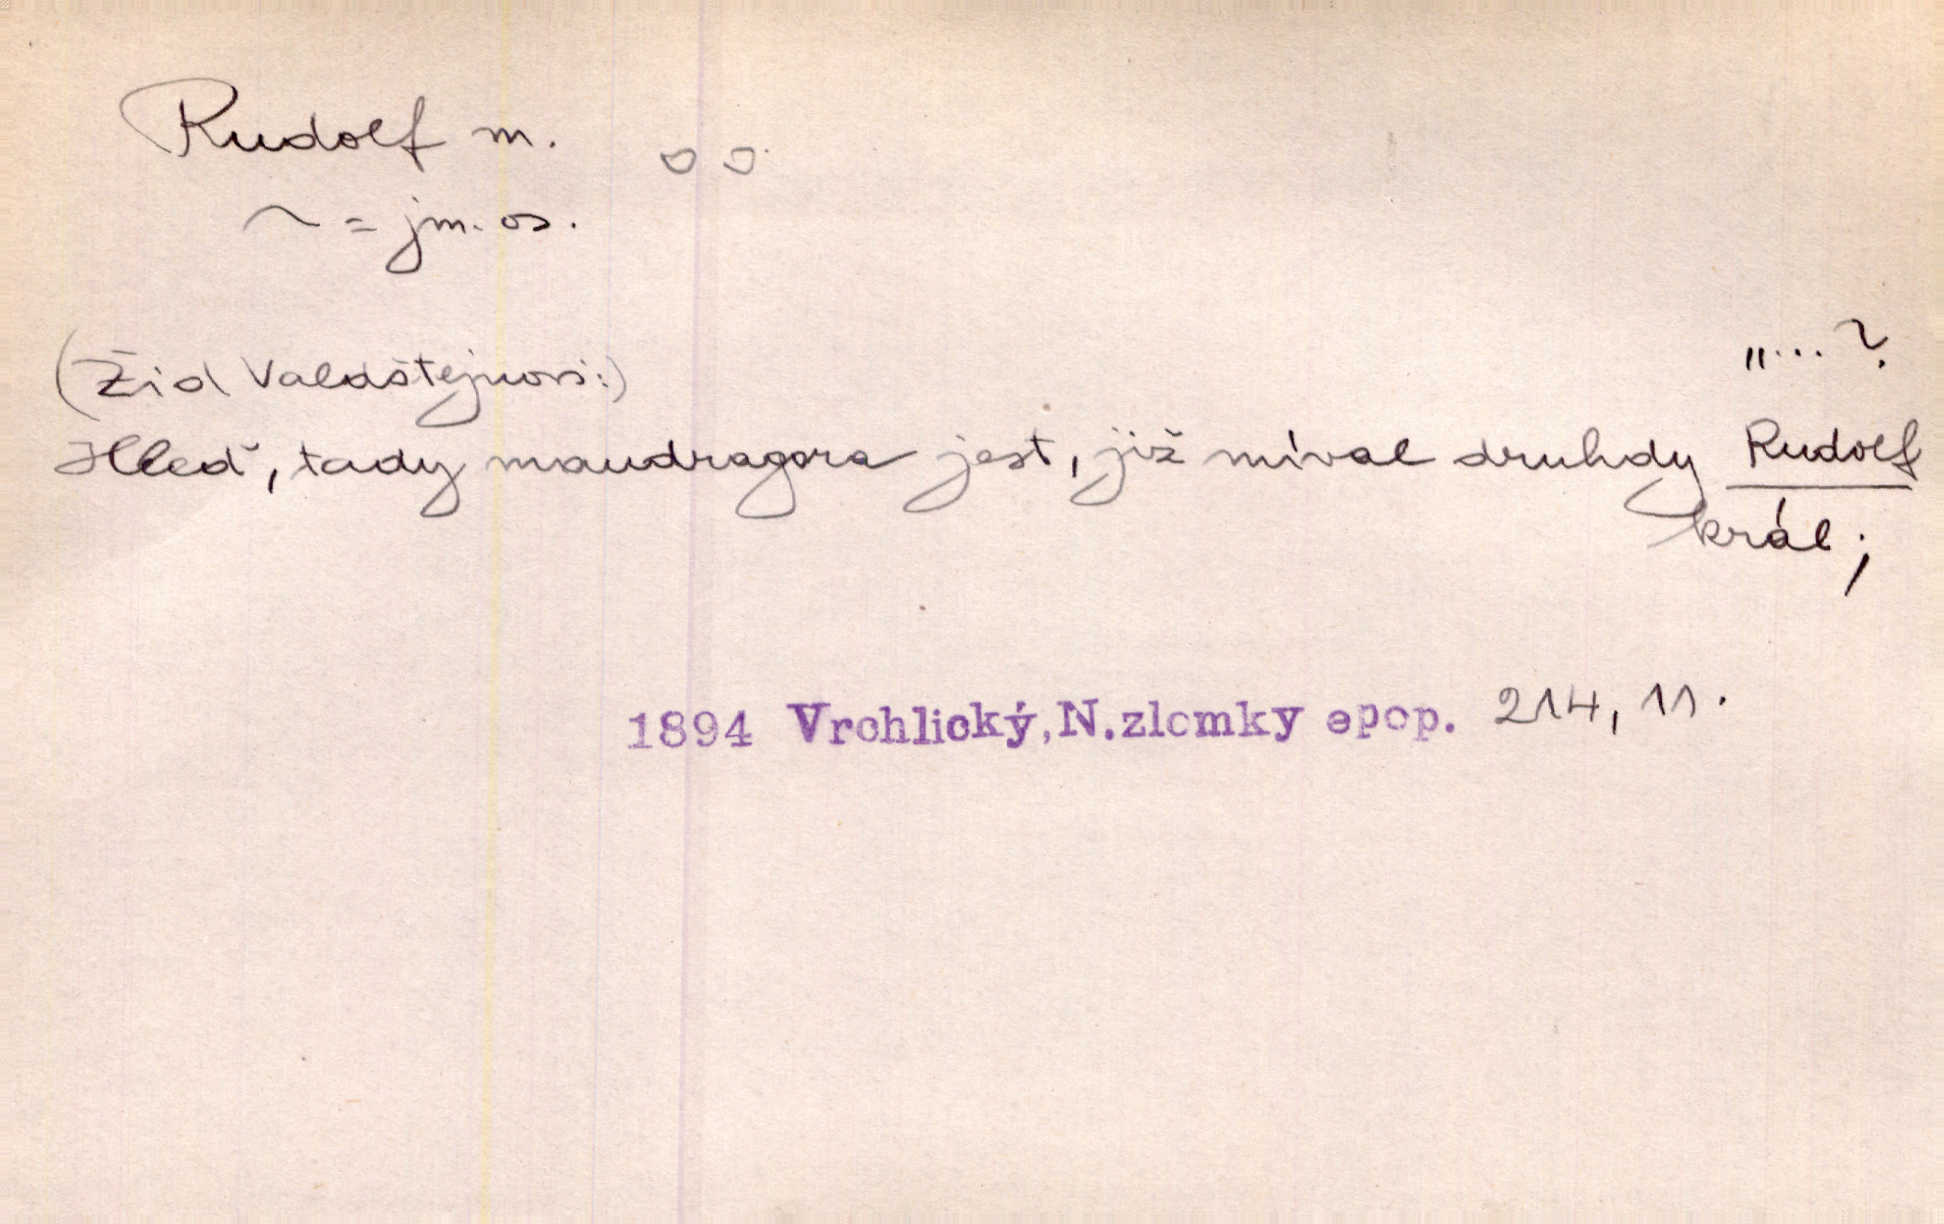 Rudolf m.
~ = jm. os.
(Žid Valdštejnovi:)
„...?
Hleď, tady mandragora jest, již míval druhdy Rudolf
král;
1894 Vrchlický, N.zlomky epop. 214, 11.